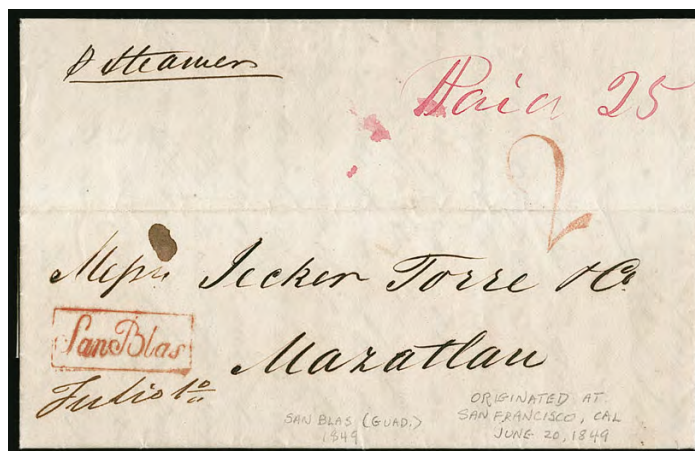 p steamer
Paid 25
2
Messrs Jecker Torre & Co
San Blas
Mazatlan
Julio 1o
SAN BLAS (GUAD.)
1849
ORIGINATED AT
SAN FRANCISCO, CAL
JUNE 20, 1849